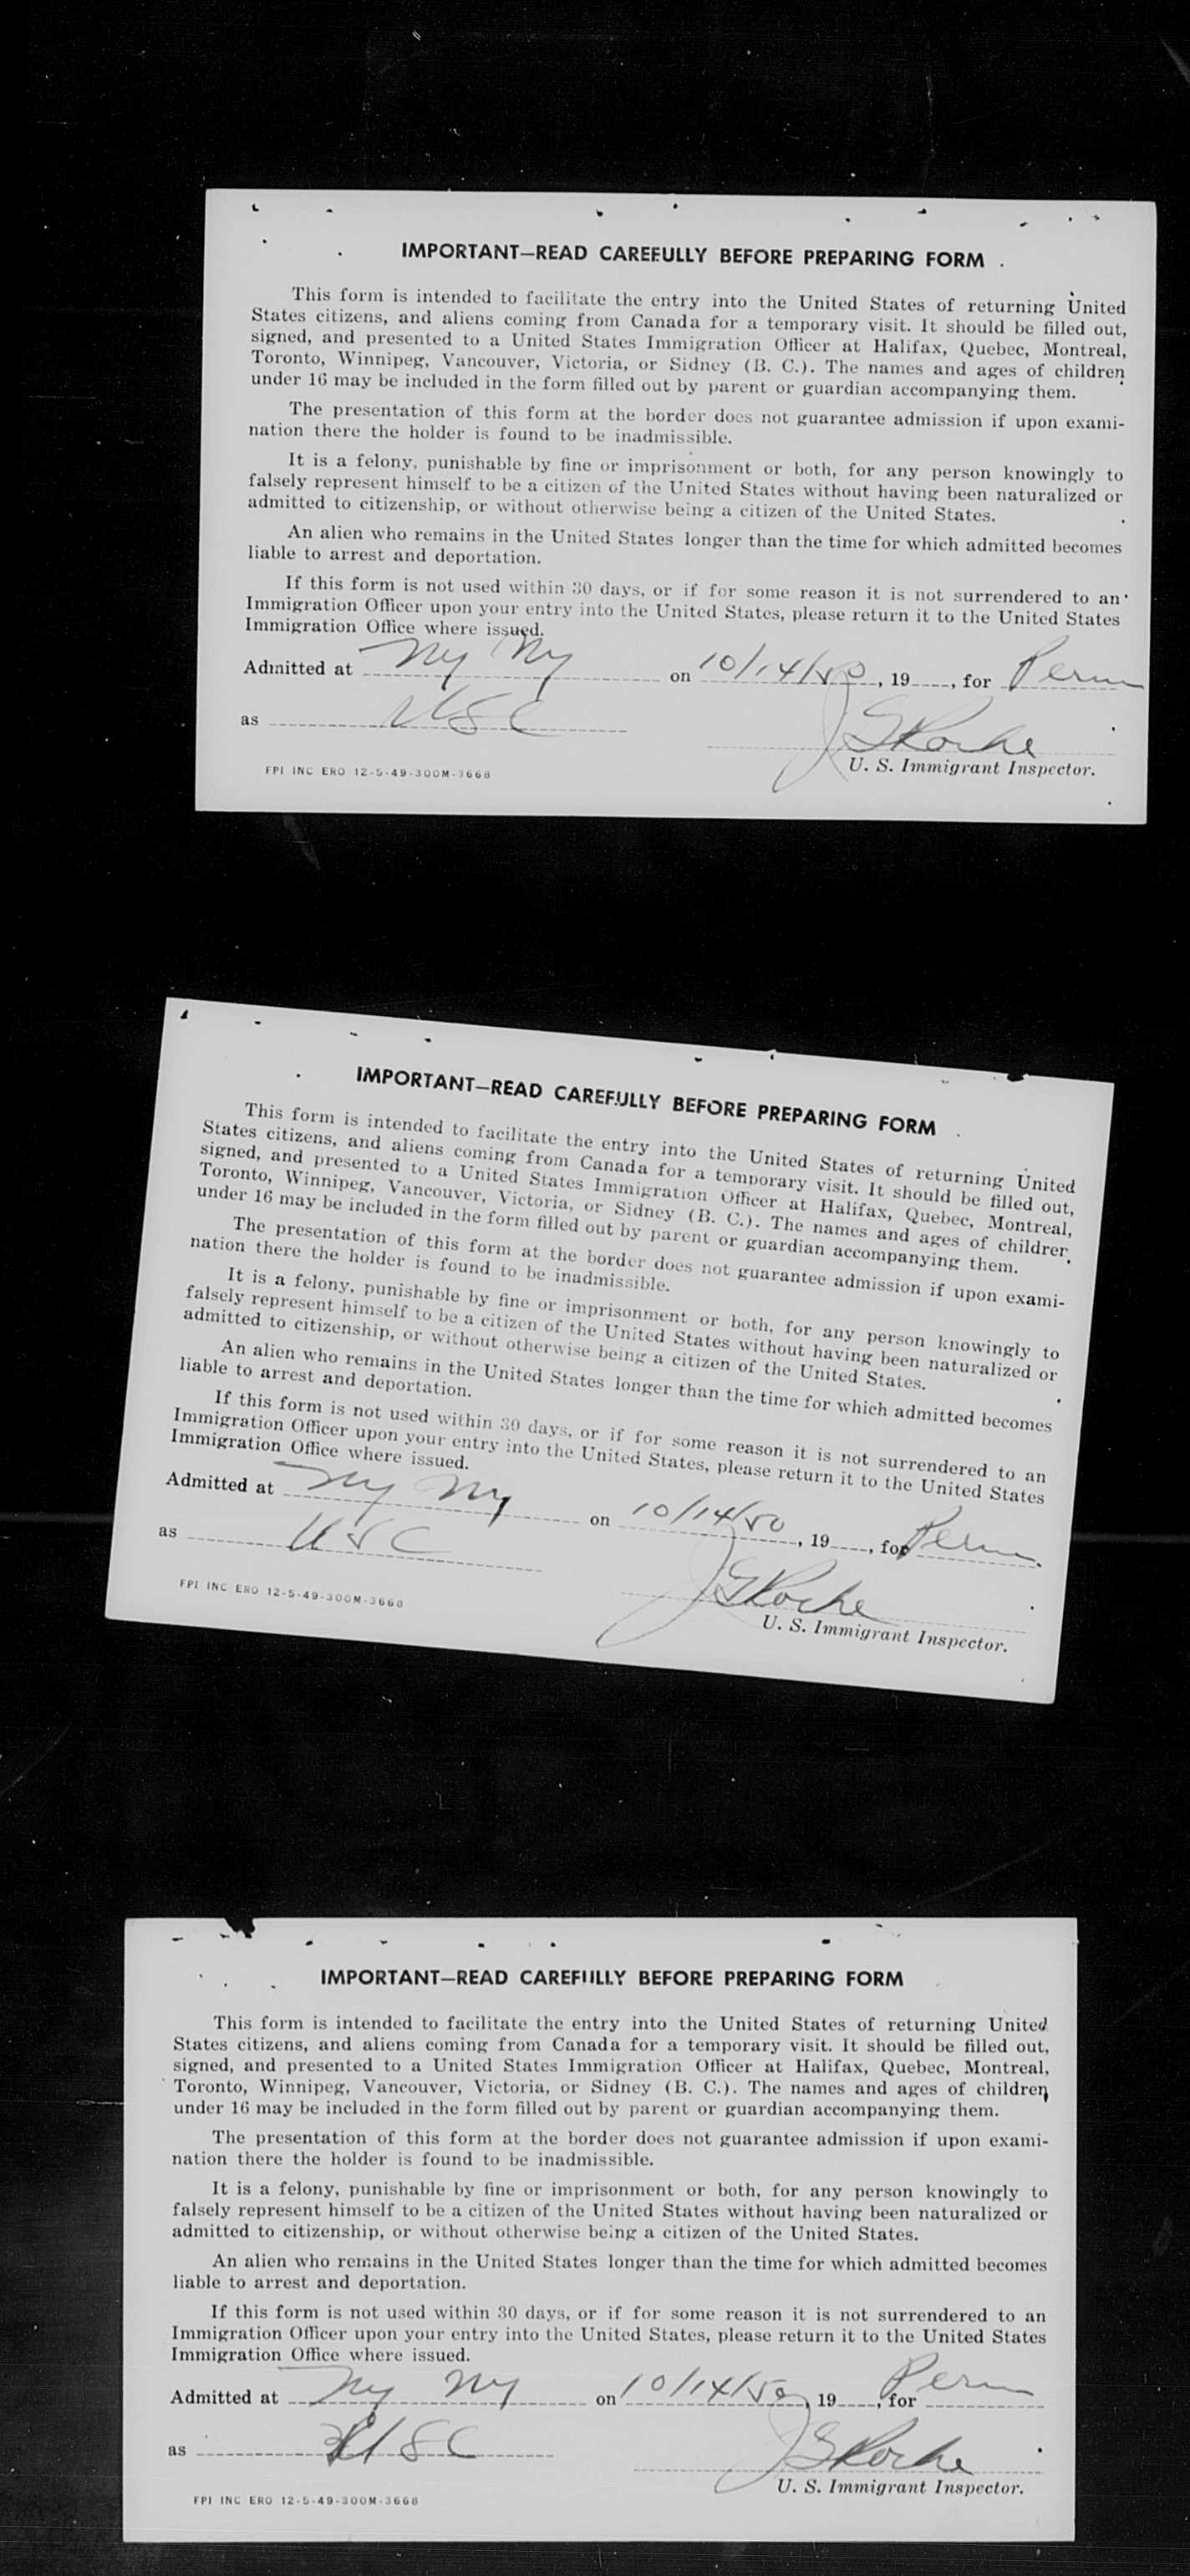 IMPORTANT—READ CAREFULLY BEFORE PREPARING FORM
This form is intended to facilitate the entry into the United States of returning United
States citizens, and aliens coming from Canada for a temporary visit. It should be filled out,
signed, and presented to a United States Immigration Officer at Halifax, Quebec, Montreal,
Toronto, Winnipeg, Vancouver, Victoria, or Sidney (B. C.). The names and ages of children
under 16 may be included in the form filled out by parent or guardian accompanying them.
The presentation of this form at the border does not guarantee admission if upon exami-
nation there the holder is found to be inadmissible.
It is a felony, punishable by fine or imprisonment or both, for any person knowingly to
falsely represent himself to be a citizen of the United States without having been naturalized or
admitted to citizenship, or without otherwise being a citizen of the United States.
An alien who remains in the United States longer than the time for which admitted becomes
liable to arrest and deportation.
If this form is not used within 30 days, or if for some reason it is not surrendered to an
Immigration Officer upon your entry into the United States, please return it to the United States
Immigration Office where issued.
Admitted at Ny Ny on 10/14/50, 19, for Perm
as USC JGRoche
U. S. Immigrant Inspector.
FPI INC ERO 12-5-49-300M-3668
IMPORTANT—READ CAREFULLY BEFORE PREPARING FORM
This form is intended to facilitate the entry into the United States of returning United
States citizens, and aliens coming from Canada for a temporary visit. It should be filled out,
signed, and presented to a United States Immigration Officer at Halifax, Quebec, Montreal,
Toronto, Winnipeg, Vancouver, Victoria, or Sidney (B. C.). The names and ages of children
under 16 may be included in the form filled out by parent or guardian accompanying them.
The presentation of this form at the border does not guarantee admission if upon exami-
nation there the holder is found to be inadmissible.
It is a felony, punishable by fine or imprisonment or both, for any person knowingly to
falsely represent himself to be a citizen of the United States without having been naturalized or
admitted to citizenship, or without otherwise being a citizen of the United States.
An alien who remains in the United States longer than the time for which admitted becomes
liable to arrest and deportation.
If this form is not used within 30 days, or if for some reason it is not surrendered to an
Immigration Officer upon your entry into the United States, please return it to the United States
Immigration Office where issued.
Admitted at Ny Ny on 10/14/50, 19, for Perm
as USC JGRoche
U. S. Immigrant Inspector.
FPI INC ERO 12-5-49-300M-3668
IMPORTANT—READ CAREFULLY BEFORE PREPARING FORM
This form is intended to facilitate the entry into the United States of returning United
States citizens, and aliens coming from Canada for a temporary visit. It should be filled out,
signed, and presented to a United States Immigration Officer at Halifax, Quebec, Montreal,
Toronto, Winnipeg, Vancouver, Victoria, or Sidney (B. C.). The names and ages of children
under 16 may be included in the form filled out by parent or guardian accompanying them.
The presentation of this form at the border does not guarantee admission if upon exami-
nation there the holder is found to be inadmissible.
It is a felony, punishable by fine or imprisonment or both, for any person knowingly to
falsely represent himself to be a citizen of the United States without having been naturalized or
admitted to citizenship, or without otherwise being a citizen of the United States.
An alien who remains in the United States longer than the time for which admitted becomes
liable to arrest and deportation.
If this form is not used within 30 days, or if for some reason it is not surrendered to an
Immigration Officer upon your entry into the United States, please return it to the United States
Immigration Office where issued.
Admitted at Ny Ny on 10/14/50, 19, for Perm
as USC JGRoche
U. S. Immigrant Inspector.
FPI INC ERO 12-5-49-300M-3668